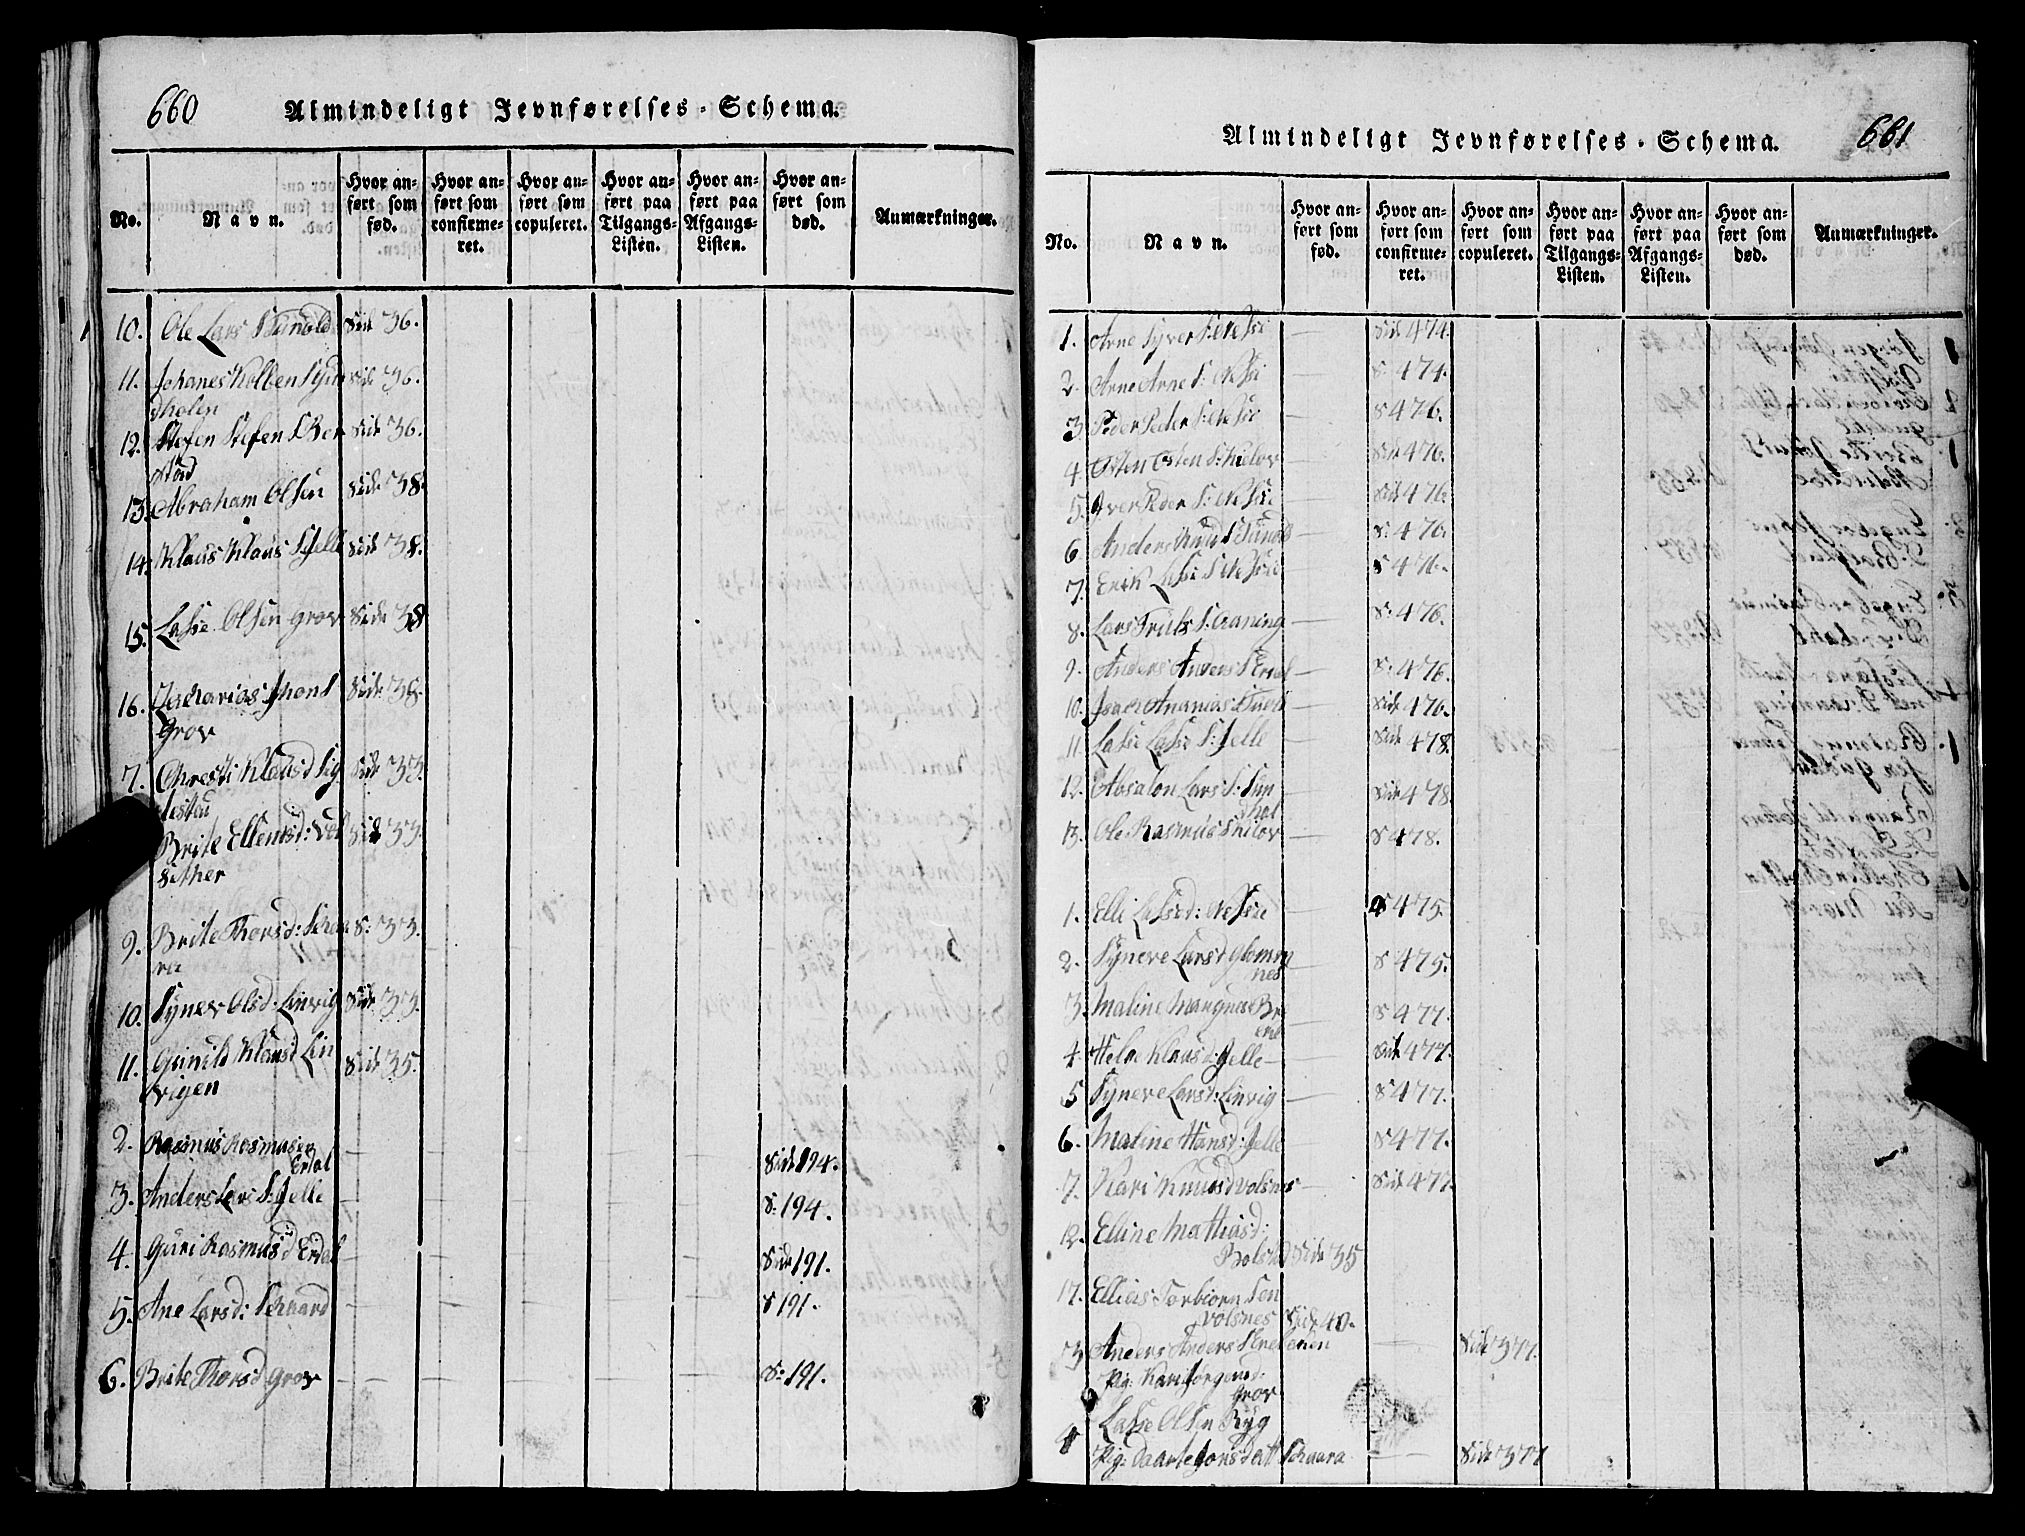 660
Almindeligt Jevnførelses-Schema.
No.
Navn.
Hvor anført som fød.
Hvor anført som confirmeret.
Hvor anført som copuleret.
Hvor anført paa Tilgangs-Listen.
Hvor anført paa Afgangs-Listen.
Hvor anført som død.
Anmærkninger.
10. Ole Lars Side 36.
11. Johanes Side 36.
dholen
12. Stefen Stefen S Side 36.
stad
13. Abraham Olsen Side 38.
14. Klaus Klaus S Jelle Side 38.
15. Lasse Olsen Grov Side 38
16. Zacharias Side 38.
Grov
7. Christi Klausd Side 33.
Brite Ellensd: Side 33.
Sether
9. Brite Thorsd: S: 33.
10. Synev Olsd: Linvig Side 33.
11. Gunild Klausd Lin Side 35.
vigen
2. Rasmus Rasmusen
Erdal Side 194.
3. Anders Lars S: Jelle S. 194.
4. Guri Rasmusd Erdal Side 191.
5. Ane Larsd: Schaard S 191.
6. Brite Thorsd Grov S: 191.
661
Almindeligt Jevnførelses-Schema.
No.
Navn.
Hvor anført som fød.
Hvor anført som confirmeret.
Hvor anført som copuleret.
Hvor anført paa Tilgangs-Listen.
Hvor anført paa Afgangs-Listen.
Hvor anført som død.
Anmærkninger.
1. Arne Syver S: Nessie Side 474.
2. Arne Arne S: Nessie S 474.
3. Peder Peder S: Nessie S 476.
4. Osten Osten S: Side 476.
5. Iver Peder S: Nessie Side 476
6. Anders Knud S S. 476.
7. Erik Lasse S Nessie S 476.
8. Lars Truls S: S. 476.
9. Anders Anders S Erdal S. 476.
10. Isach Ananias Side 476.
11. Lasse Lasse S: Jelle Side 478.
12. Absalon Lars S: Sun Side 478
dhol
13. Ole Rasmus S 478.
1. Elli Lassed: Nessie S 475.
2. Syneve Larsd Glomm S 475.
nes
3. Maline Mangnusd S 477.
4. Klausd: Jelle Side 477.
5 Syneve Larsd: Linvig S 477.
6. Maline Hansd: Jelle S 477.
7. Kari Knudsd Volsnes Side 477.
12. Elline Mathiasd:
Bolstad Side 35
17. Ellias Torbiorn Sen
Volsnes Side 40.
3 Anders Anders Side 377.
Pig: Kari
Grov
4 Lasse Olsn Ryg
Pig: Daarte Schaara Side 377